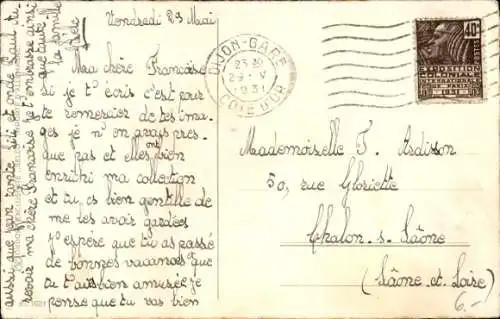 Vendredi 29 Mai
Ma chère Françoise
si je t'écris c'est pour
te remercier de tes ima-
ges je n'en avais pres-
que pas et elles ont bien
enrichi ma collection
et tu es bien gentille de
me les avoir gardées
J'espère que tu as passé
de bonnes vacances que
tu t'es bien amusée je
pense que tu vas bien
aussi, que ta tante et oncle Paul
revoir ma chère Françoise je t'embrasse ainsi
que toute
la famille
DIJON-GARE
23 30
29 - V
1931
CÔTE D'OR
40c
EXPOSITION
COLONIALE
INTERNATIONALE
PARIS
1931
Mademoiselle F. Ardisson
50, rue Gloriette
Chalon-s-Saône
(Saône et Loire)
6.-